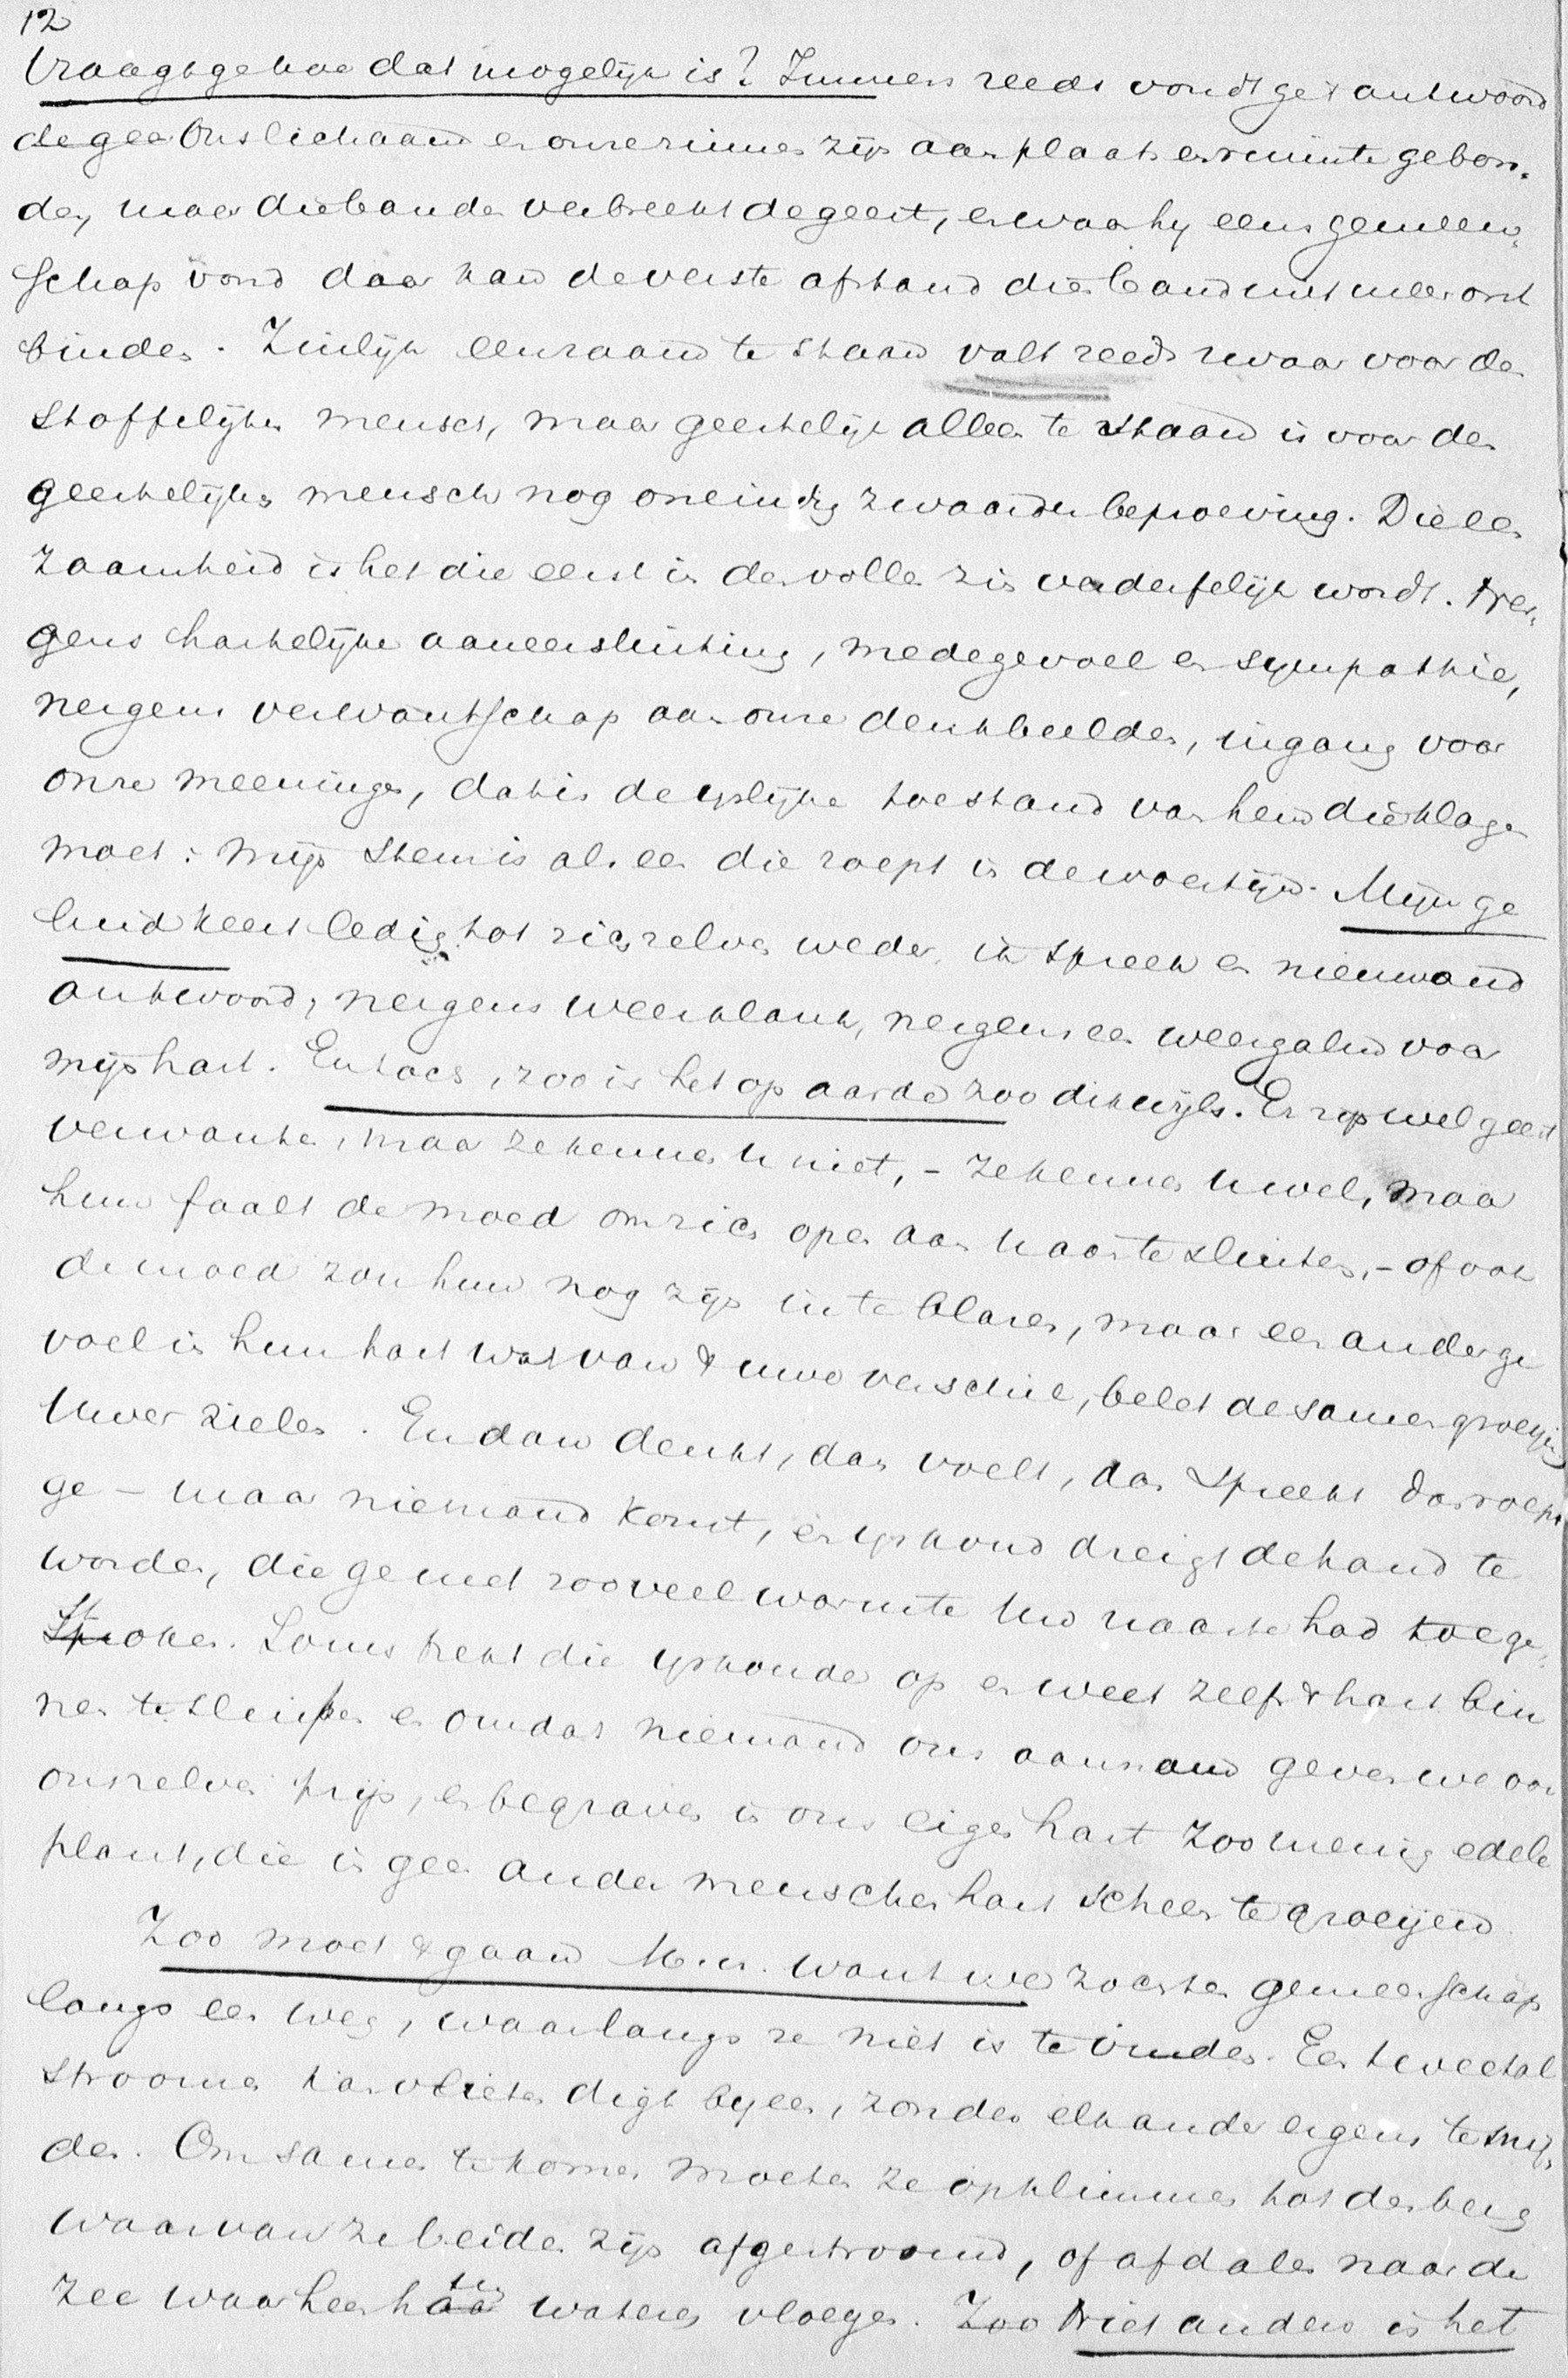 12
Vraagt ge hoe dat mogelijk is? Immers reeds vondt ge 't antwoord
de gee Ons lichaam en onze zinnen zijn aan plaats en ruimte gebon-
den, maar die banden verbreekt de geest, en waar hij eens gemeen-
schap vond daar kan de verste afstand dien band niet meer ont
binden. Zinlijk eenzaam te staan valt reeds zwaar voor den
stoffelijken mensch, maar geestelijk alleen te staan is voor den
geestelijken mensch nog oneindig zwaarder beproeving. Die een
zaamheid is het die eerst in den vollen zin verderfelijk wordt. Ner-
gens hartelijke aaneensluiting, medegevoel en sympathie,
nergens verwantschap aan onze denkbeelden, ingang voor
onze meeningen, dat is de ijslijke toestand van hem die klagen
moet: mijn stem is als een die roept in de woestijn. Mijn ge
luid keert ledig tot zich zelven weder, ik spreek en niemand
antwoord, nergens weerklank, nergens een weergalm voor
mijn hart. En toch, zoo is het op aarde zoo dikwijls. Er zijn wel geest
verwanten, maar ze kennen u niet, - ze kennen u wel, maar
hun faalt de moed om zich open aan u aan te sluiten, - of ook
de moed zou hun nog zijn in te blazen, maar een ander ge
voel in hun hart wat van 't uwe verschil, belet de samengroeijing
uwer zielen. En dan denkt, dan voelt, dan spreekt dan roept
ge - maar niemand komt, en ijskoud dreigt de hand te
worden, die ge met zooveel warmte uw naaste had toege-
stroken. Soms trekt die ijskoude op en weet zelfs 't hart bin
nen te sluipen en omdat niemand ons aannam geven we ook
onszelven prijs, en begraven in ons eigen hart zoo menig edele
plant, die in geen ander menschenhart scheen te groeijen.
Zoo moet 't gaan M. H. want we zochten gemeenschap
langs een weg, waarlangs ze niet is te vinden. Een tweetal
stroomen kan vlieten digt bijeen, zonder elkander ergens te snij-
den. Om samen te komen moeten ze opklimmen tot den berg
waarvan ze beiden zijn afgestroomd, of afdalen naar de
zee waarheen haar wateren vloeijen. Zoo Niet anders is het